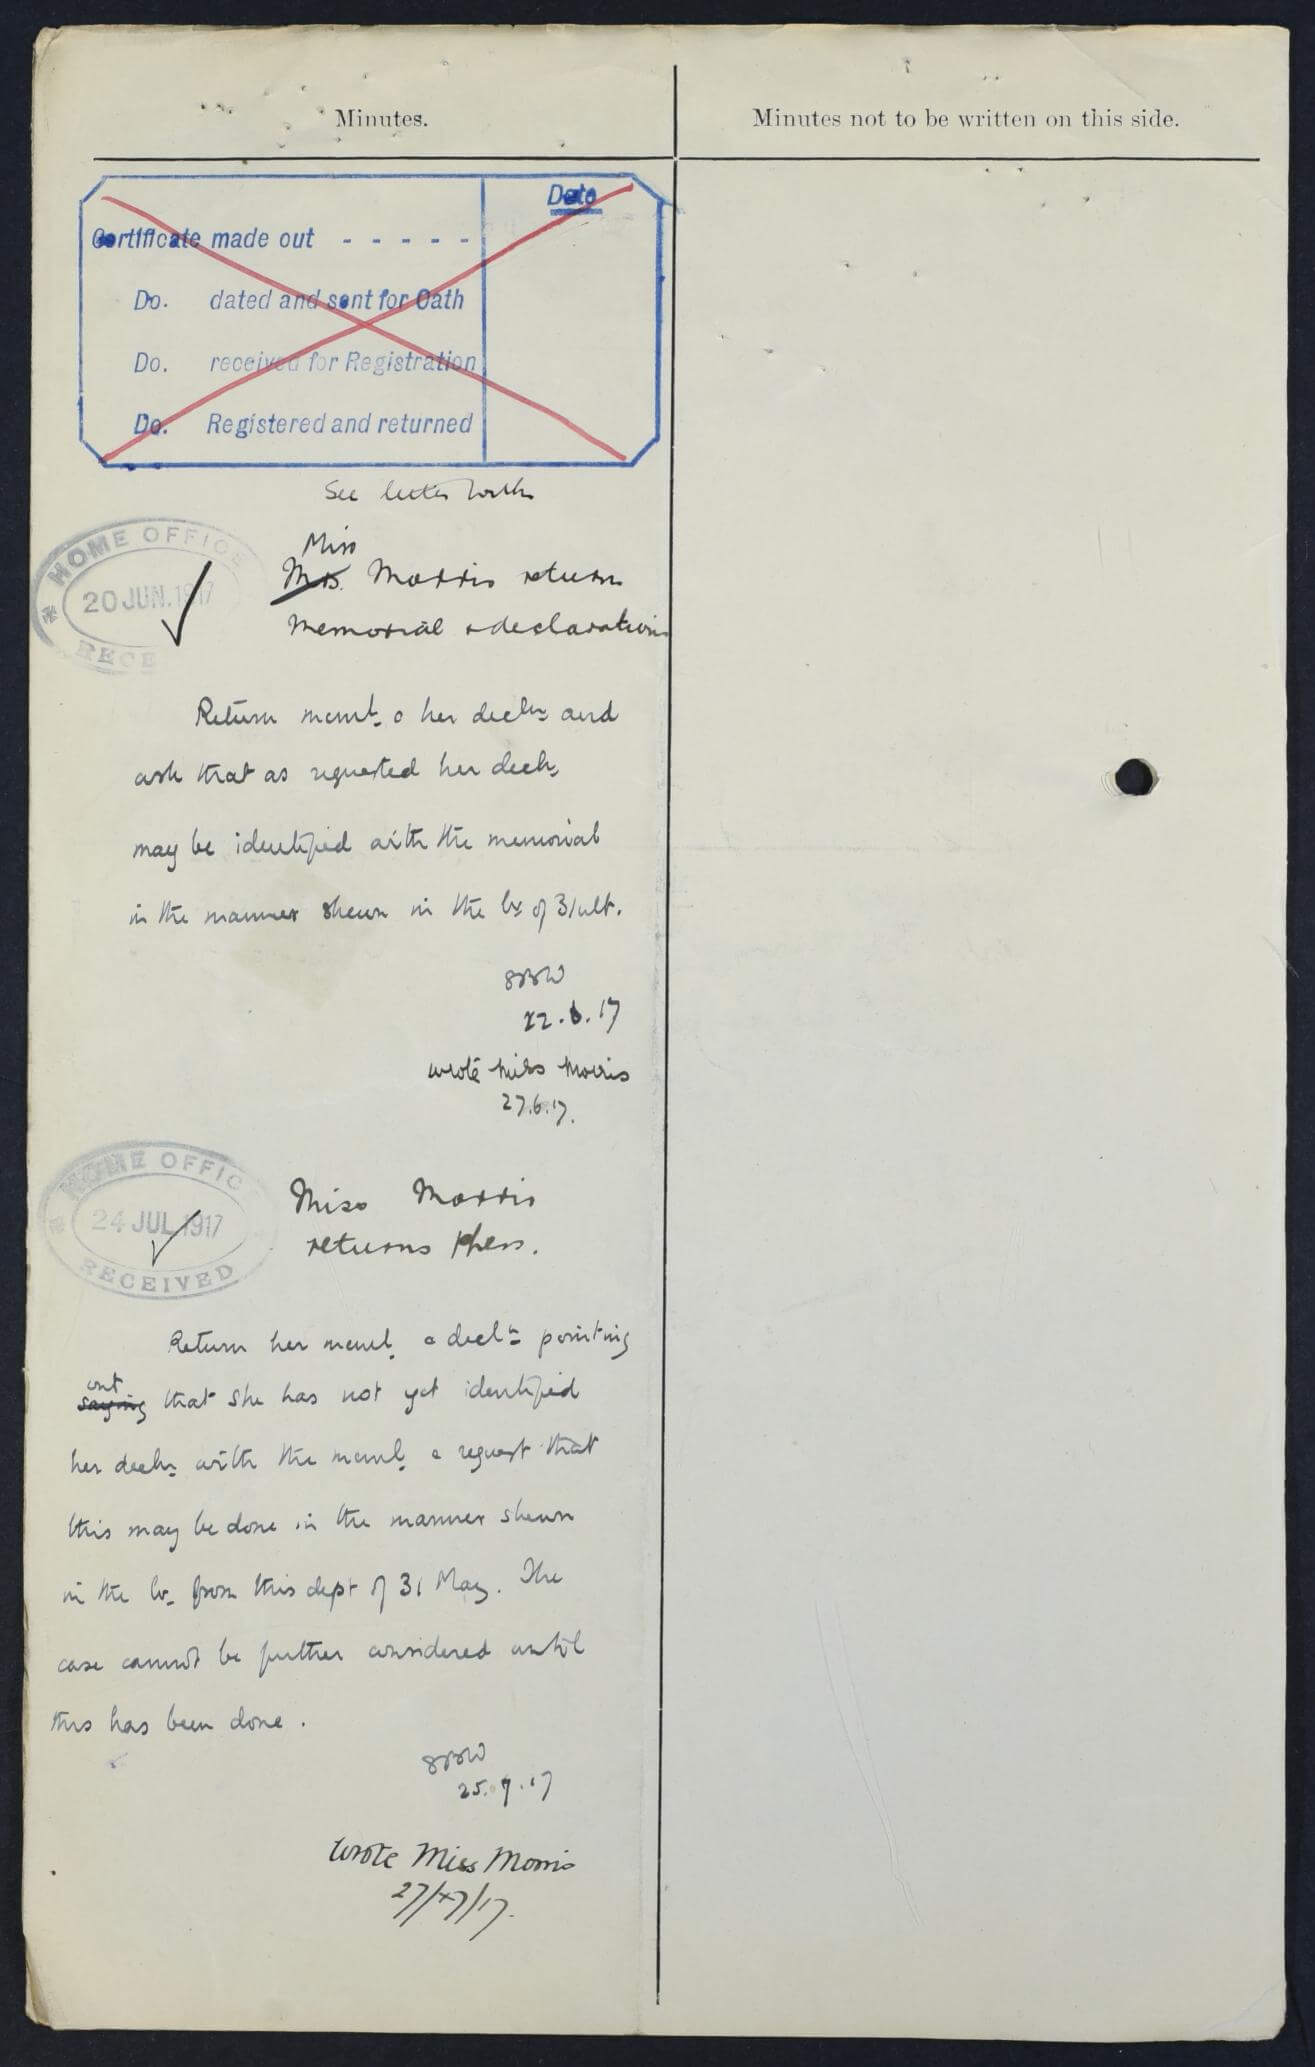 Minutes.
Minutes not to be written on this side.
Date
Certificate made out - - - - -
Do. dated and sent for Oath
Do. received for Registration
Do. Registered and returned
See letter
HOME OFFICE
20 JUN. 1917
RECE
Miss
Mrs. Morris returns
Memorial & declaration
Return meml. & her decln and
ask that as requested her decln
may be identified with the memorial
in the manner shewn in the lr of 31 ult.
22.6.17
wrote Miss Morris
27.6.17.
HOME OFFIC
24 JUL 1917
RECEIVED
Miss Morris
returns
Return her meml. & decln pointing
out
saying that she has not yet identified
her decln with the meml. & request that
this may be done in the manner shewn
in the lr from this dept of 31 May. The
case cannot be further considered until
this has been done.
25.7.17
Wrote Miss Morris
27/7/17.